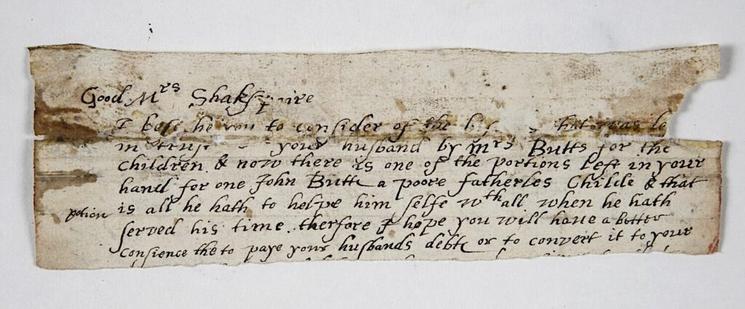 Good Mrs Shakspaire
I bese he you to consider of the that was le
in trust your husband by Mrs Butts for the
children & now there is one of the portions left in your
hand for one John Butte a poore fatherles Childe & that
is all he hath to helpe him selfe wth all when he hath
served his time. therfore I hope you will have a better
Consience then to paye your husbands debte or to convert it to your